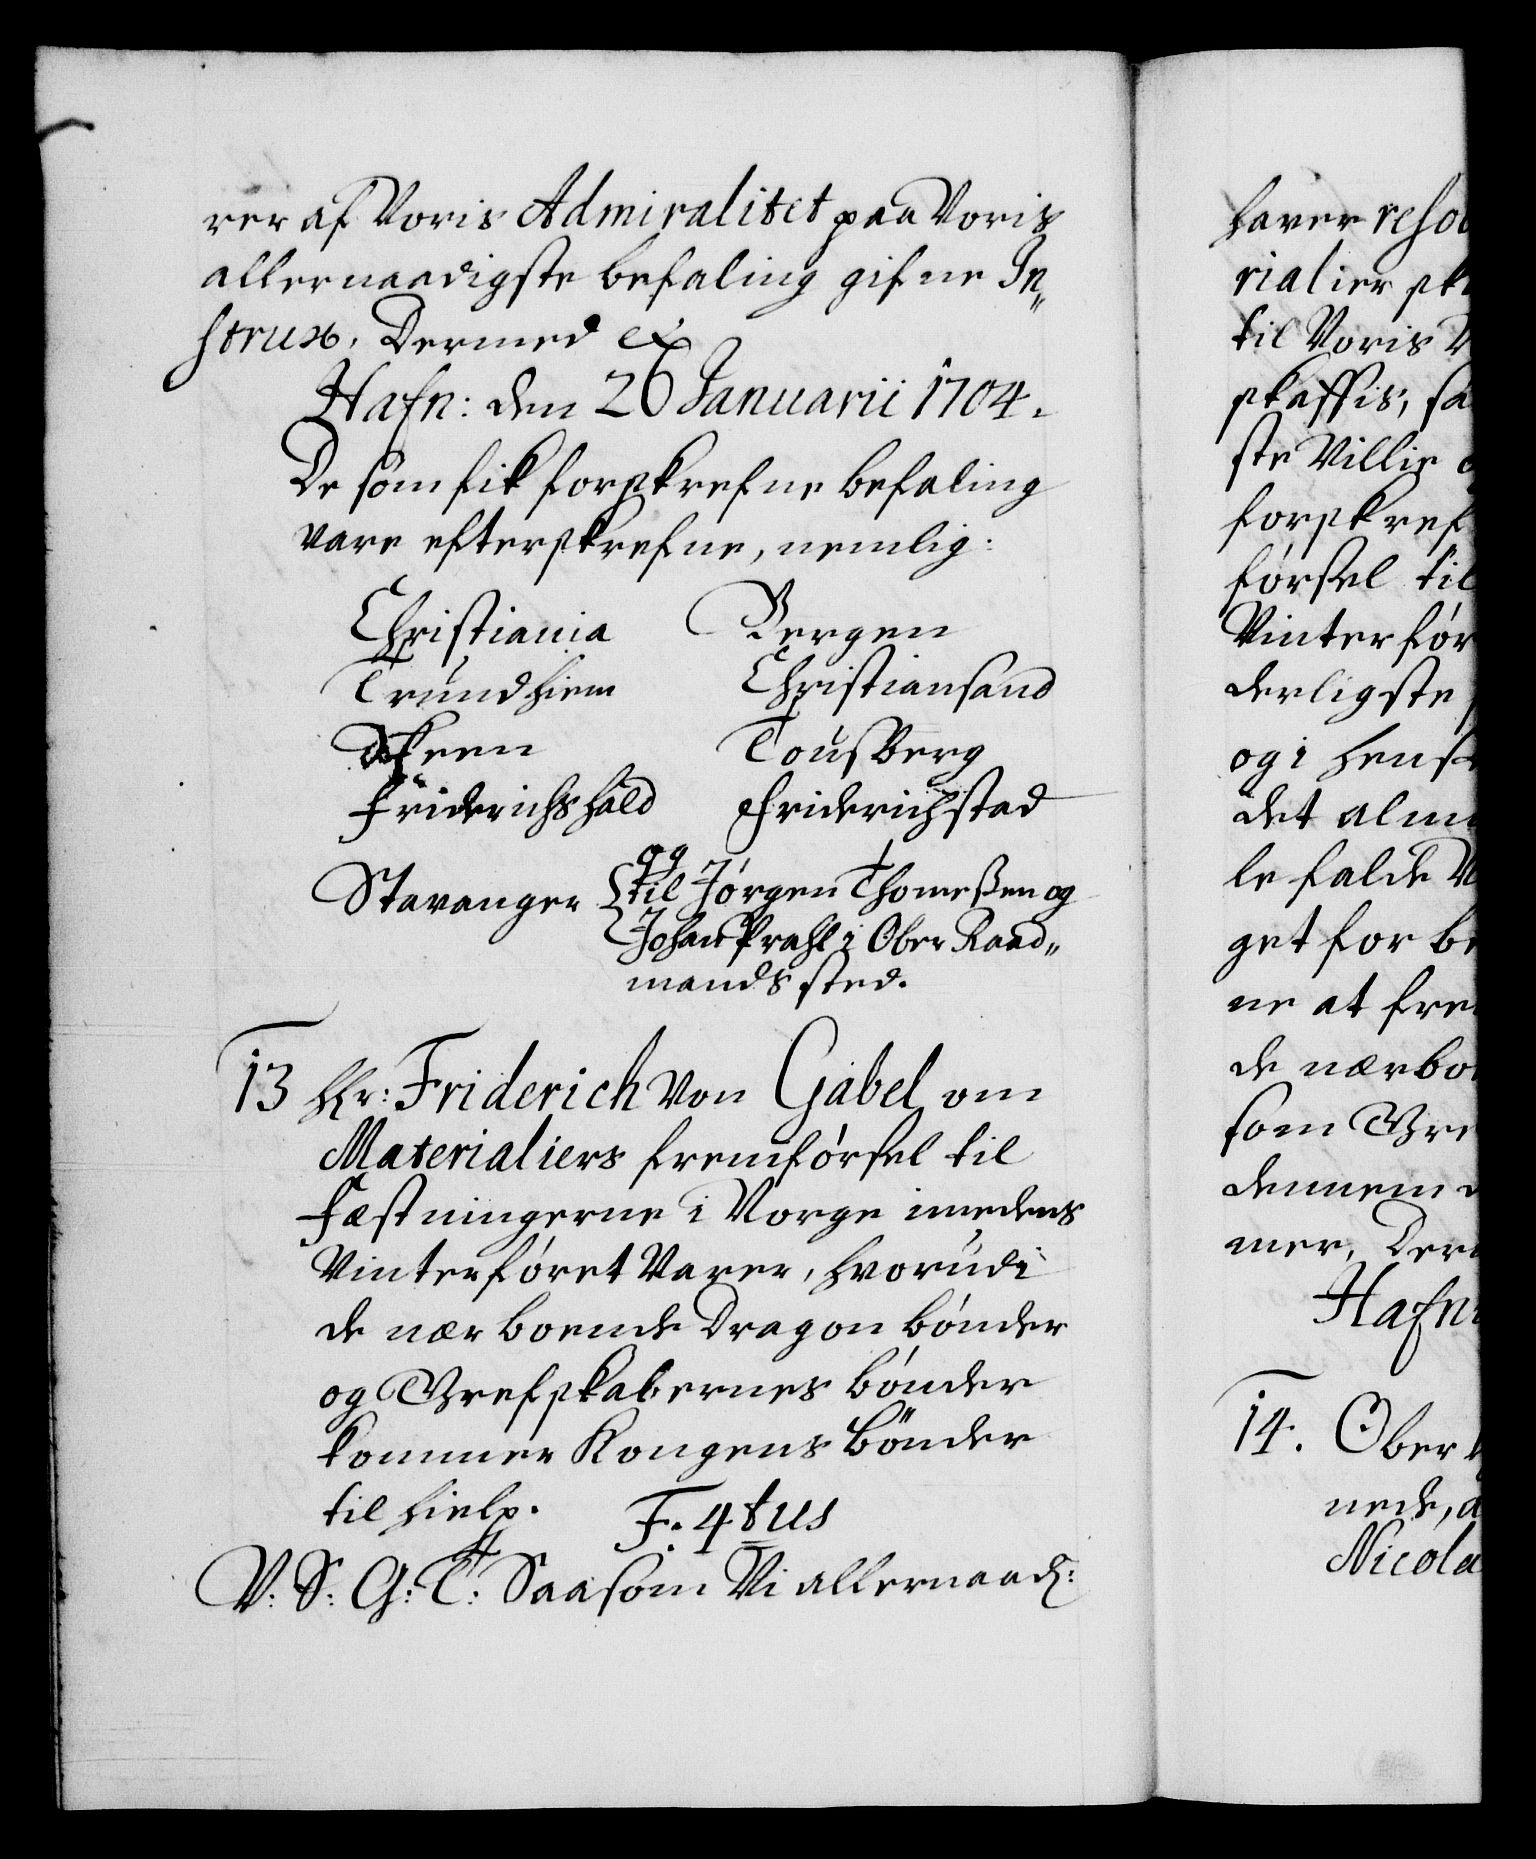 rer af Voris Admiralitet paa Voris
allernaadigste befaling gifne In„
strux, Dermed ex
Hafn: den 26 Januarii 1704.
De som fik forskrefne befaling
vare efterskrefne, nemlig:
Christiania Bergen
Trundhiem Christiansand
Skeen Tousberg
Friderichshald Friderichstad
og
Stavanger til Jørgen Thomeßen og
Johan Prahl i Ober Raad„
mands sted.
13 Hr: Friderich Von Gabel om
Materialiers fremførsel til
Fæstningerne i Norge imedens
Vinterføret Varer, hvorudi
de nærboende Dragon bønder
og Grefskabernes bønder
kommer Kongens bönder
til hielp. F. 4tus
V: S: G: T: Saasom Vi allernaad:
haver resol
rialier sk
til Voris
skaffis, sa
ste Villie
forskref
førsel til
Vinterfør
derligste
og i hens
det alm
le falde
get for be
ne at fre
de nærbo
som Gre
dennem
mer, Der
Hafn:
14. Ober
nede, a
Nicola